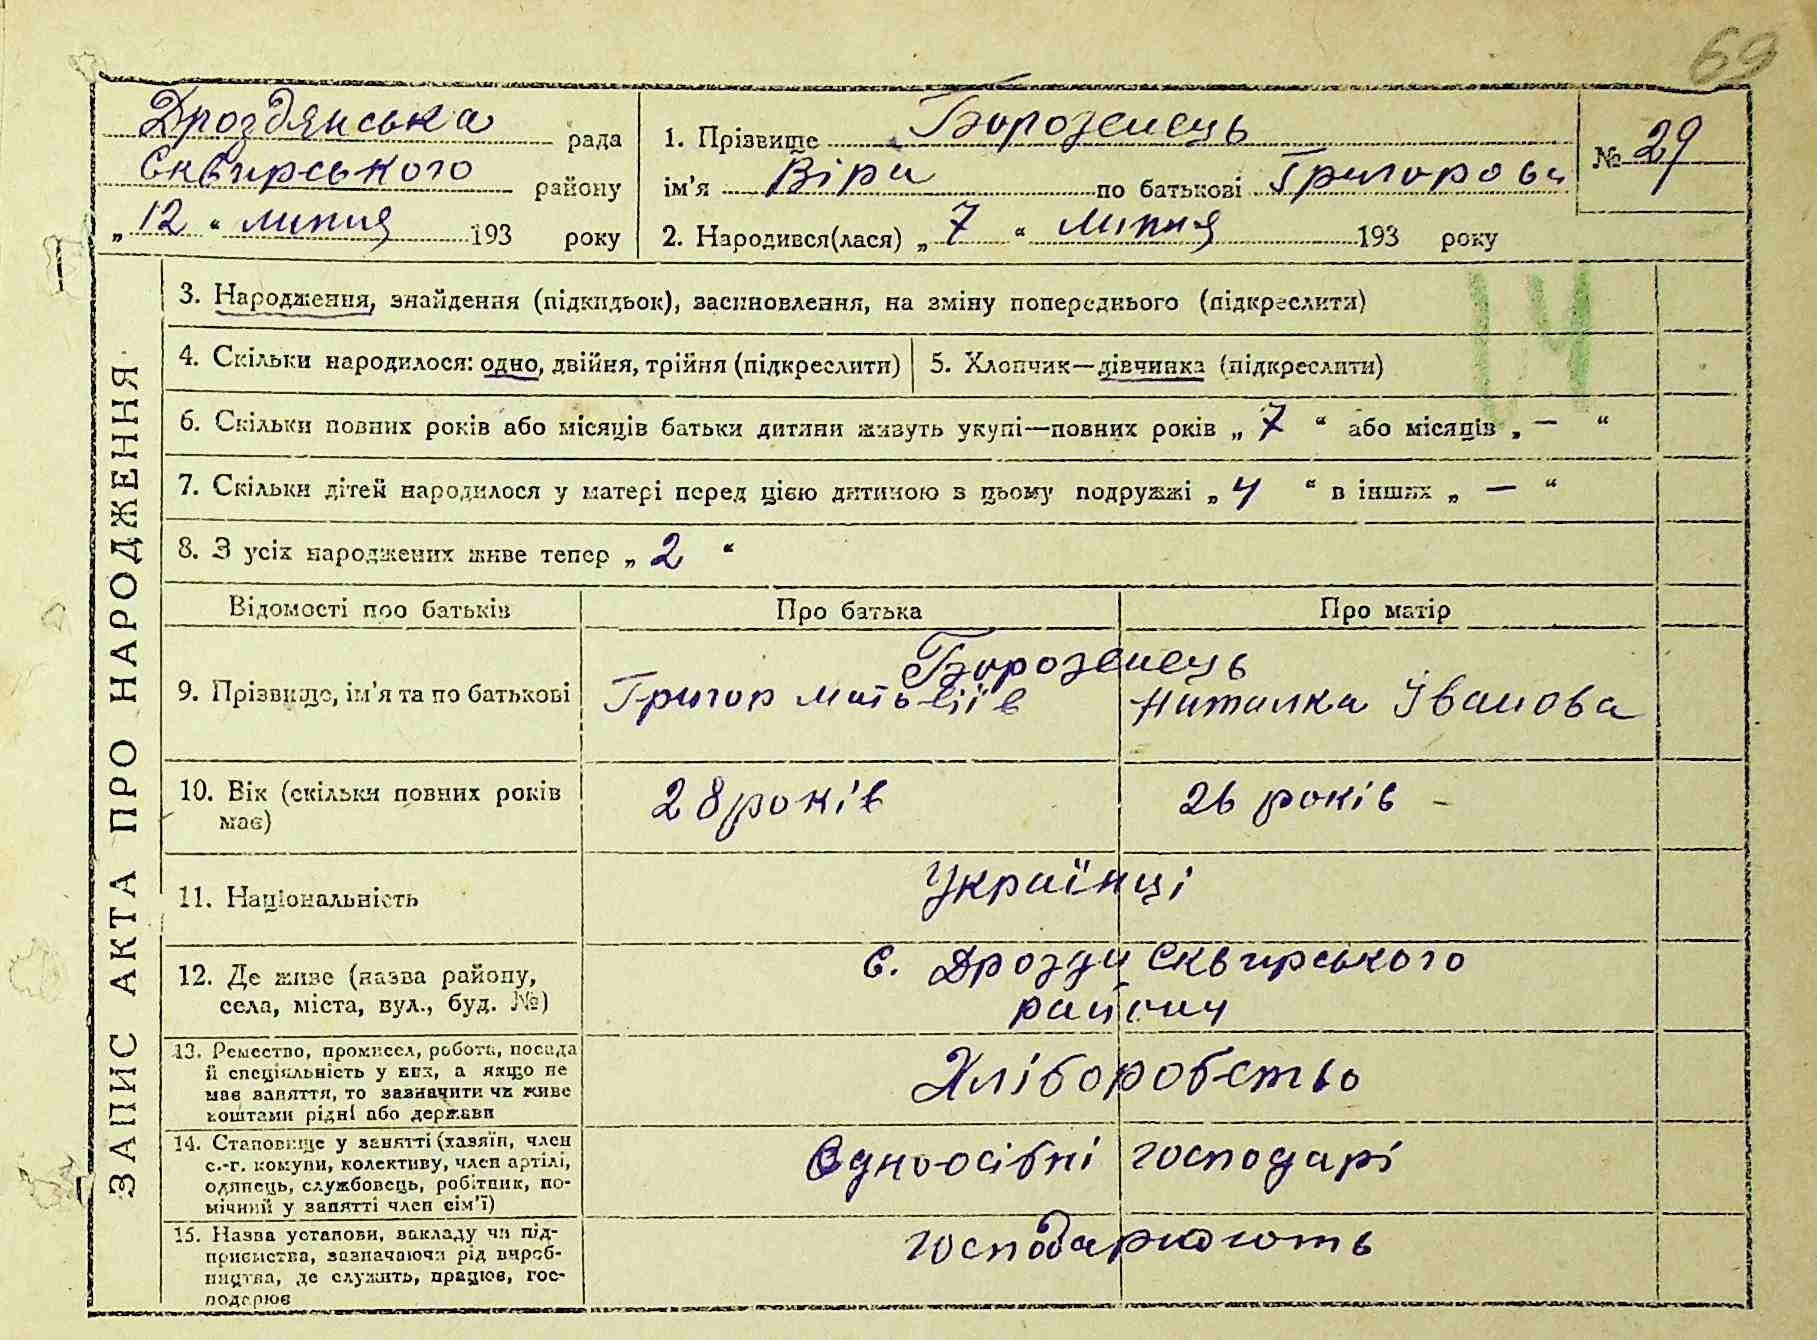 69
Дроздянська рада
Сквирського району
„ 12 “ липня 193 року
1. Прізвище Бороженець
ім'я Віра по батькові Григорова
2. Народився(лася) „ 7 “ липня 193 року
№ 29
ЗАПИС АКТА ПРО НАРОДЖЕННЯ
3. Народження, знайдення (підкидьок), засиновлення, на зміну попереднього (підкреслити)
14
4. Скільки народилося: одно, двійня, трійня (підкреслити)
5. Хлопчик—дівчинка (підкреслити)
6. Скільки повних років або місяців батьки дитини живуть укупі—повних років „ 7 “ або місяців „ — “
7. Скільки дітей народилося у матері перед цією дитиною в цьому подружжі „ 4 “ в інших „ — “
8. З усіх народжених живе тепер „ 2 “
Відомості про батьків Про батька Про матір
Бороженець
9. Прізвище, ім'я та по батькові Григор Матьвіїв Наталка Іванова
10. Вік (скільки повних років 28 років 26 років –
має)
11. Національність Українці
12. Де живе (назва району, с. Дрозди Сквирського
села, міста, вул., буд. №) району
13. Ремество, промисел, робота, посада
й спеціяльність у них, а якщо не Хліборобство
має заняття, то зазначити чи живе
коштами рідні або держави
14. Становище у занятті (хазяїн, член
с.-г. комуни, колективу, член артілі, Одноосібні господарі
одинець, службовець, робітник, по-
мічний у занятті член сім'ї)
15. Назва установи, закладу чи під-
приємства, зазначаючи рід вироб- господаркюють
ництва, де служить, працює, гос-
подарює